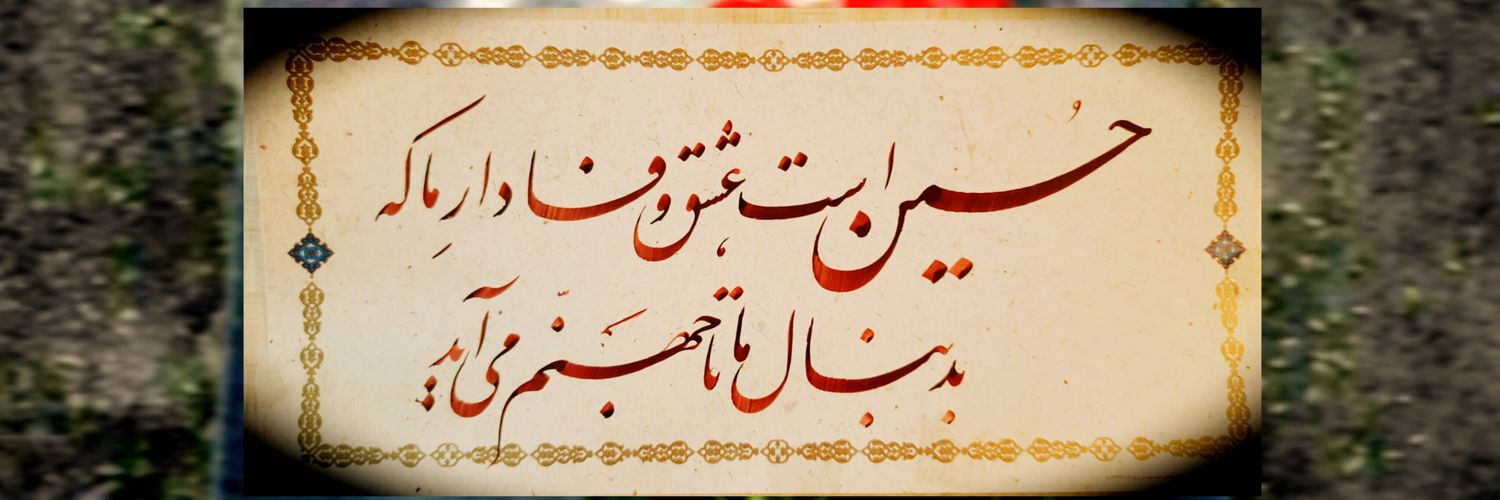 حُسین است عشق وفادارِ ما که
بدنبال ما تا جهنّم می آید